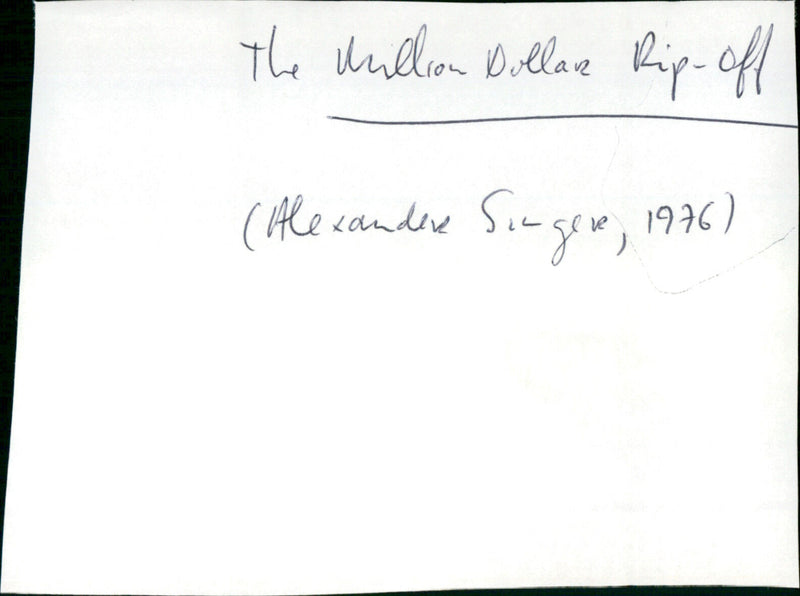 The Million Dollar Rip-Off
(Alexander Singer, 1976)